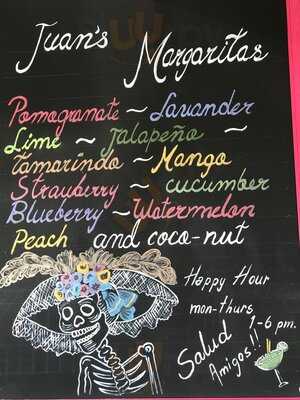 Juan's Margaritas
Pomagranate ~ Lavander
Lime ~ Jalapeño ~
Tamarindo ~ Mango
Strawberry ~ cucumber
Blueberry ~ Watermelon
Peach and coco-nut
Happy Hour
mon-thurs
1-6 pm.
Salud
Amigos!!